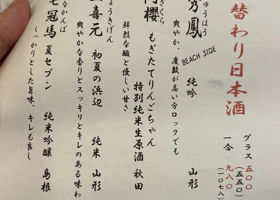 替わり日本酒
グラス 五〇〇
（五五〇）
一合 九八〇
（一〇七八）
ゅうほう
芳鳳 純吟 山形
爽やか、度数が高い分ロックでも
BEACH SIDE
櫻 もぎたてりんごちゃん
特別純米生原酒 秋田
鮮烈な酸と優しい甘さ
よきげん
上喜元 初夏の浜辺 純米 山形
爽やかな香りとスッキリとキレのある味わ
なかんば
七冠馬 夏セブン 純米吟醸 島根
くっきりとした旨味、キレも良し